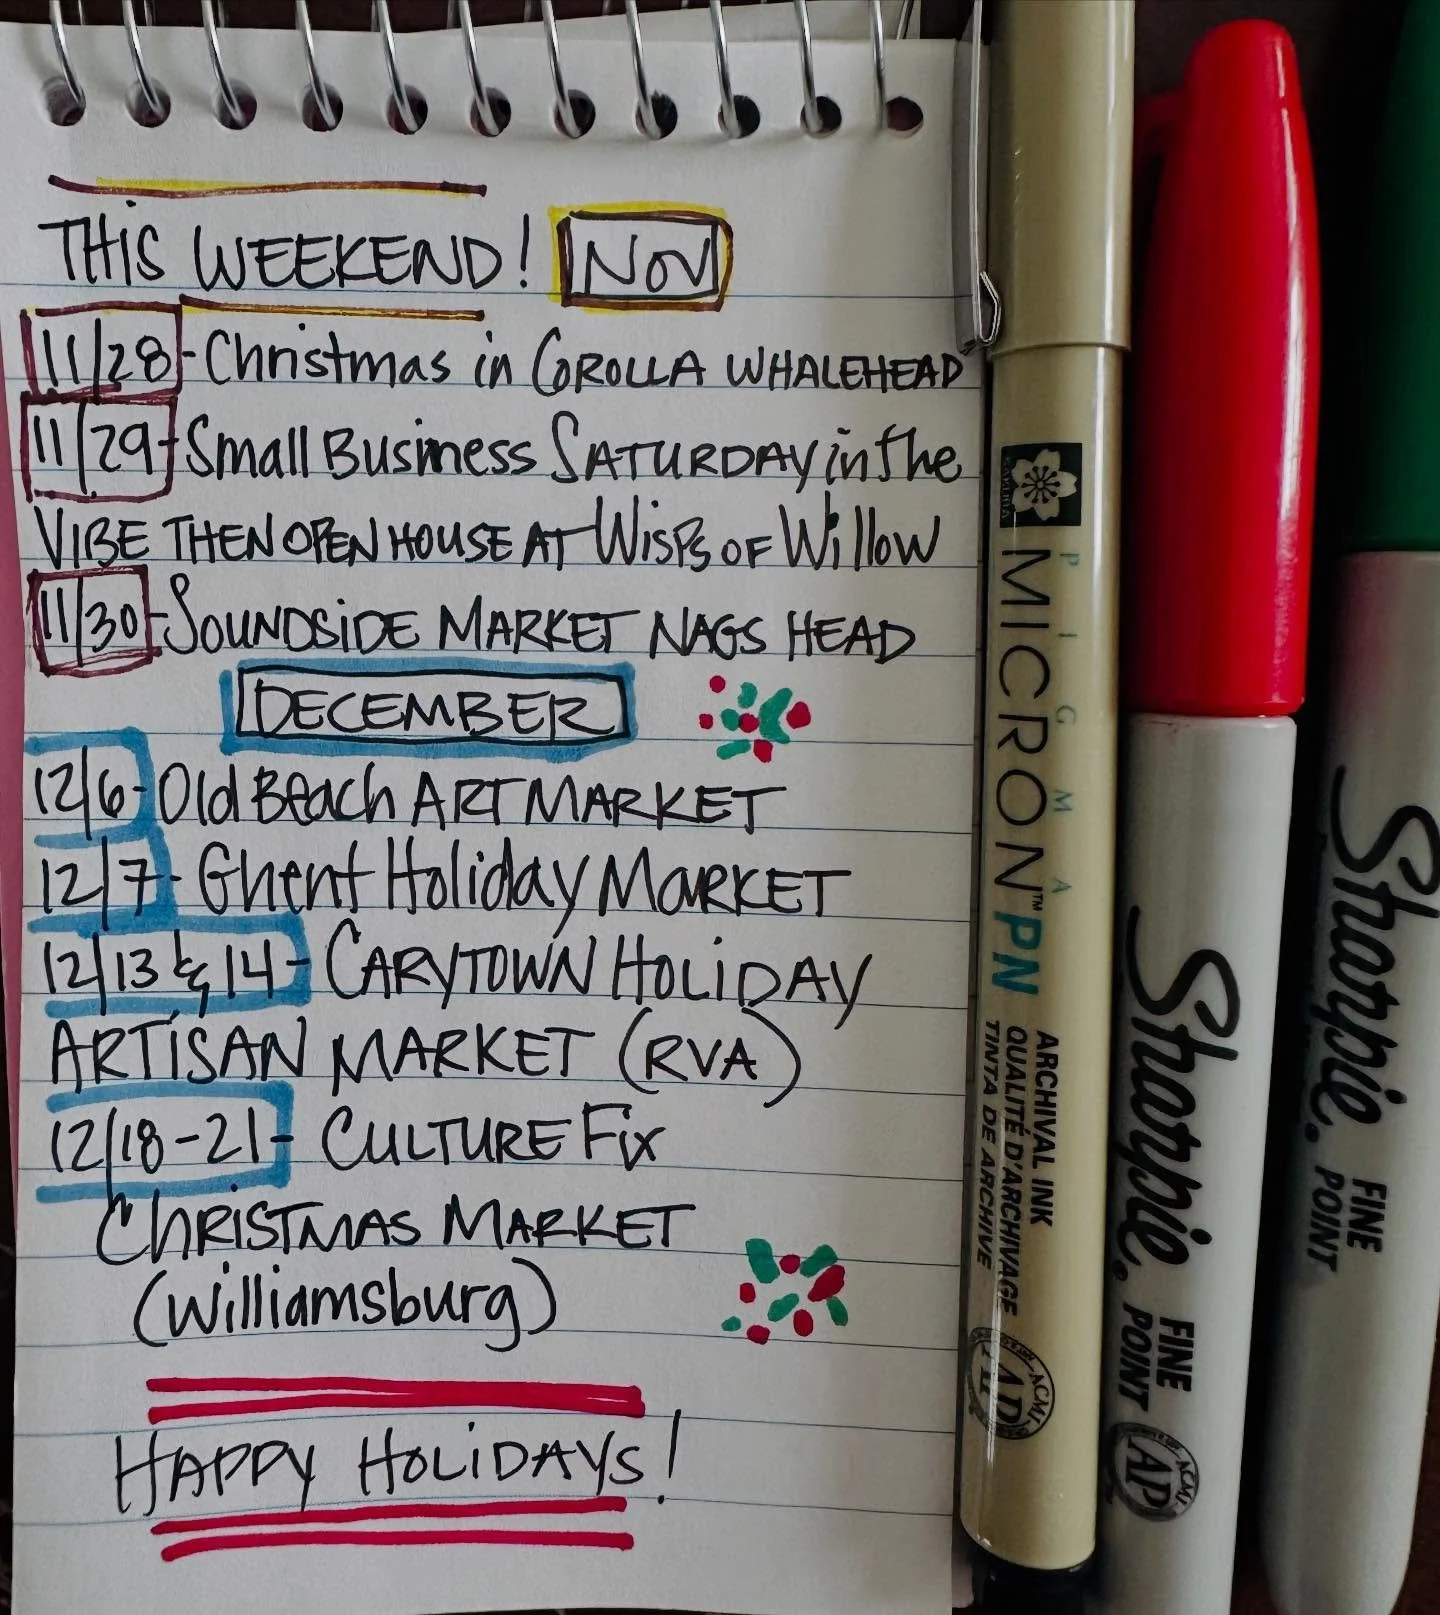 THIS WEEKEND! NOV
11/28 - Christmas in COROLLA WHALEHEAD
11/29 - Small Business SATURDAY in the
VIBE THEN OPEN HOUSE AT WISPS OF Willow
11/30 - SOUNDSIDE MARKET NAGS HEAD
DECEMBER
12/6 - Old BEach ART MARKET
12/7 - Ghent Holiday MARKET
12/13 & 14 - CARYTOWN HOLIDAY
ARTISAN MARKET (RVA)
12/18-21 - CULTURE Fix
ChRISTMAS MARKET
(Williamsburg)
HAPPY HOLIDAYS!
SAKURA
PIGMA
MICRON™ PN
ARCHIVAL INK
QUALITÉ D'ARCHIVAGE
TINTA DE ARCHIVE
AP
ACMI
Sharpie.
FINE
POINT
AP
ACMI
Sharpie.
FINE
POINT